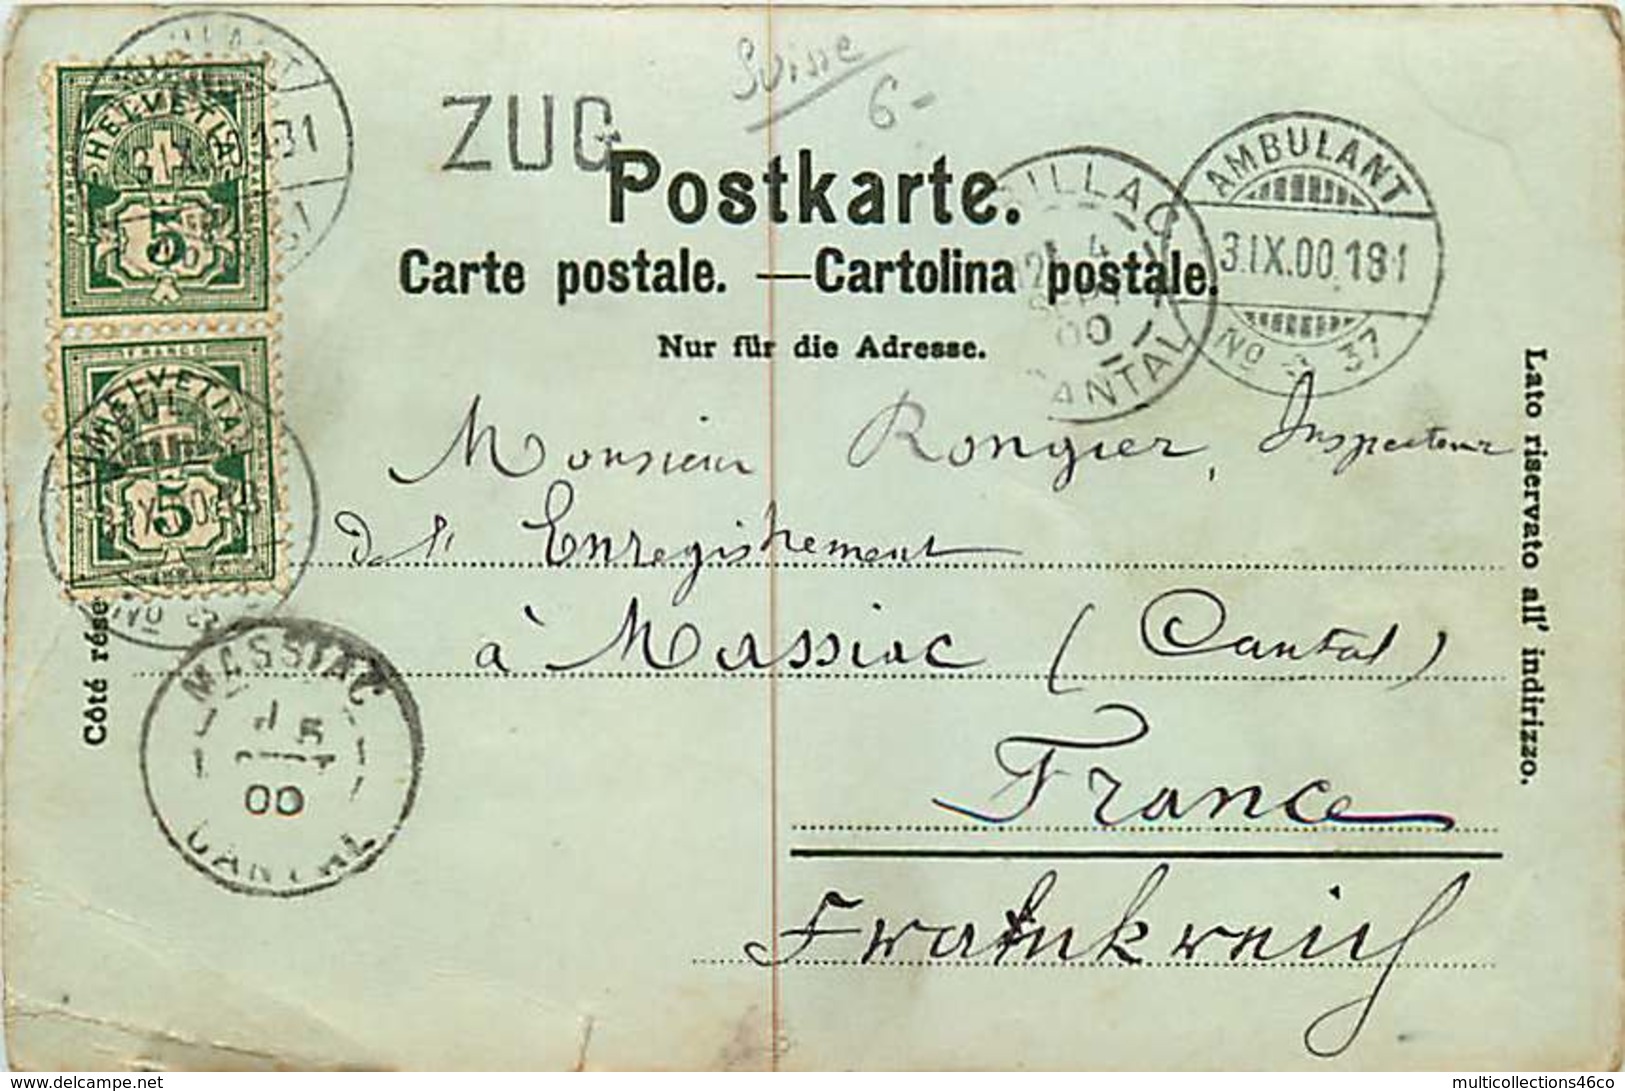 Suisse
6-
ZUG
Postkarte.
Carte postale. — Cartolina postale.
Nur für die Adresse.
HELVETIA
5
FRANCO
HELVETIA
5
AMBULANT
3.IX.00.181
No 37
ILLAC
4
00
CANTAL
Monsieur Rongier, Inspecteur
de l'Enregistrement
à Massiac (Cantal)
France
Frankreich
MASSIAC
5
00
CANTAL
Côté rése
Lato riservato all' indirizzo.
delcampe.net
multicollections46co